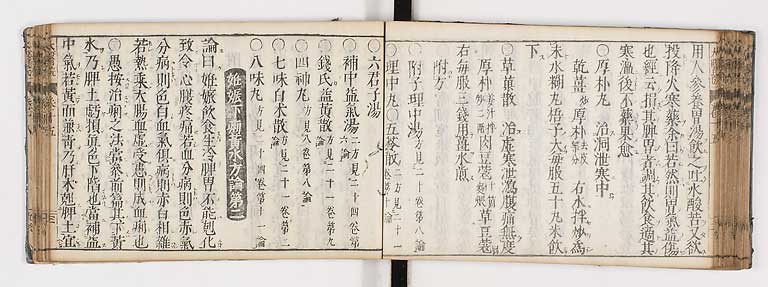 用人參養胃湯飲之吐水酸苦又欲
投降火寒藥余曰若然則胃氣益傷
也經云損其脾胃者調其飲食適其
寒溫後不藥果愈
○厚朴丸 治洞泄寒中
乾薑 厚朴去皮 右水拌炒為
末水糊丸梧子大每服五十丸米飲
下
○草菓散 治虛寒泄瀉腹痛無度
厚朴 肉豆蔻 草豆蔻
右每服三錢用薑水煎
附方
○附子理中湯二方見二十一卷第八論
○理中丸○五苓散
○六君子湯
○補中益氣湯二方見二十四卷第六論
○錢氏益黃散方見二十一卷第九論
○四神丸方見二十一卷第
○七味白朮散方見八卷第八論
○八味丸方見二十四卷第十一論
妊娠下痢黃水方論第二
論曰妊娠飲食生冷脾胃不能剋化
致令心腹疼痛若血分病則色赤氣
分病則色白血氣俱病則赤白相雜
若熱乘大腸血虛受患則成血痢也
○愚按治痢之法當參前篇其下黃
水乃脾土虧損真色下陷也當補益
中氣若黃而兼青乃肝木剋脾土宜